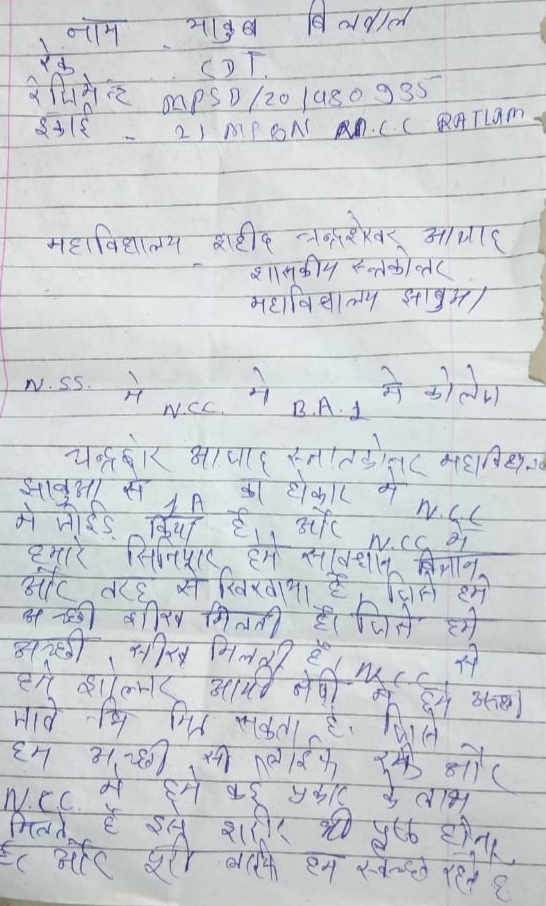 नाम - मायुब बिलवाल
रेंक CDT.
रेजिमेन्ट MPSD/20/480935
इकाई - 21 MPBN N.C.C RATLAM
महाविद्यालय - शहीद चन्द्रशेखर आजाद
शासकीय स्नकोतर
महाविद्यालय झाबुआ
N.SS. मे N.C.C. मे B.A.1 मे कोलेज
आजाद स्नातकोत्तर महाविद्यालय
झाबुआ से 1A का में N.C.C
मे जोईड किया है, और N.C.C में
हमारे सिनियार हमे सावधान विश्राम
और तरह से सिखाया है, जिसे हमे
अच्छी शीख मिलती है। जिसे हमे
अच्छी सीख मिलती है, N.C.C से
हमे आर्मी नेवी मे हम
मिल सकता है, जिसे
हम अच्छी सी लाईफ और
N.C.C. मे हमे कई प्रकार के लाभ
मिलते है इस शरीर भी होता
है और पुरी लाईफ हम स्वच्छ रहते है